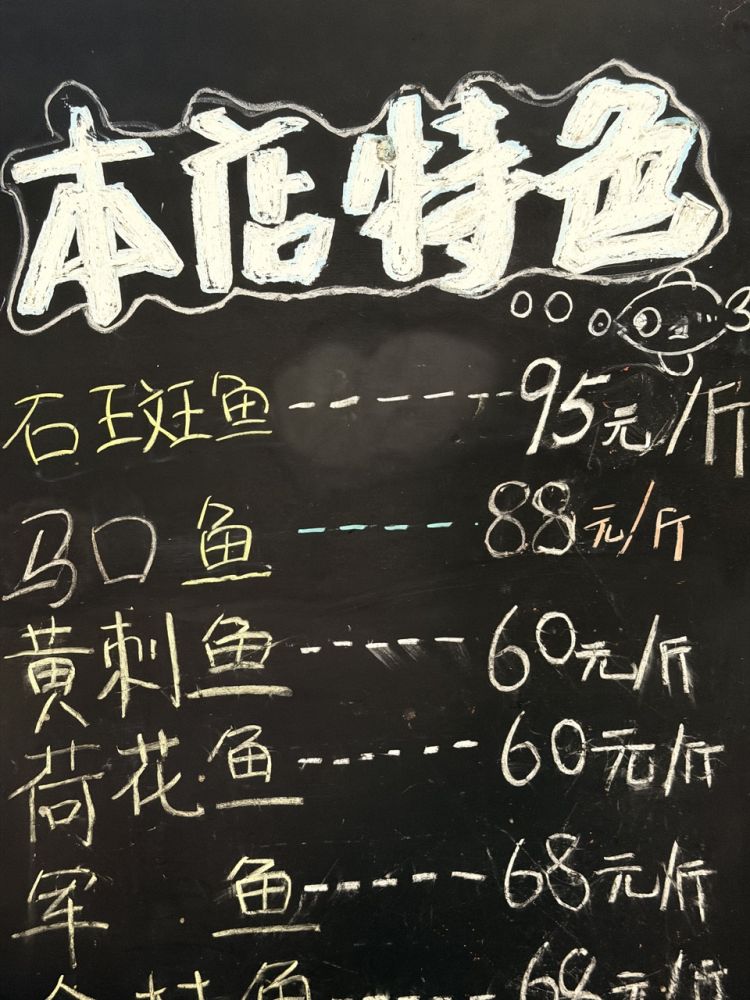 本店特色
石斑鱼-----95元/斤
马口鱼----88元/斤
黄刺鱼-----60元/斤
荷花鱼-----60元/斤
军鱼-----68元/斤
鱼-----68元/斤